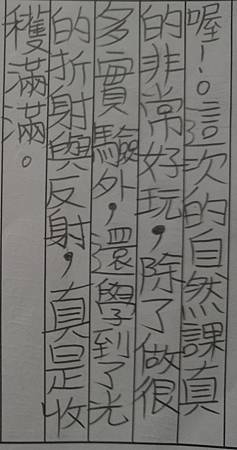 喔!。這次的自然課真
的非常好玩,除了做很
多實驗外,還學到了光
的折射與反射,真是收
穫滿滿。